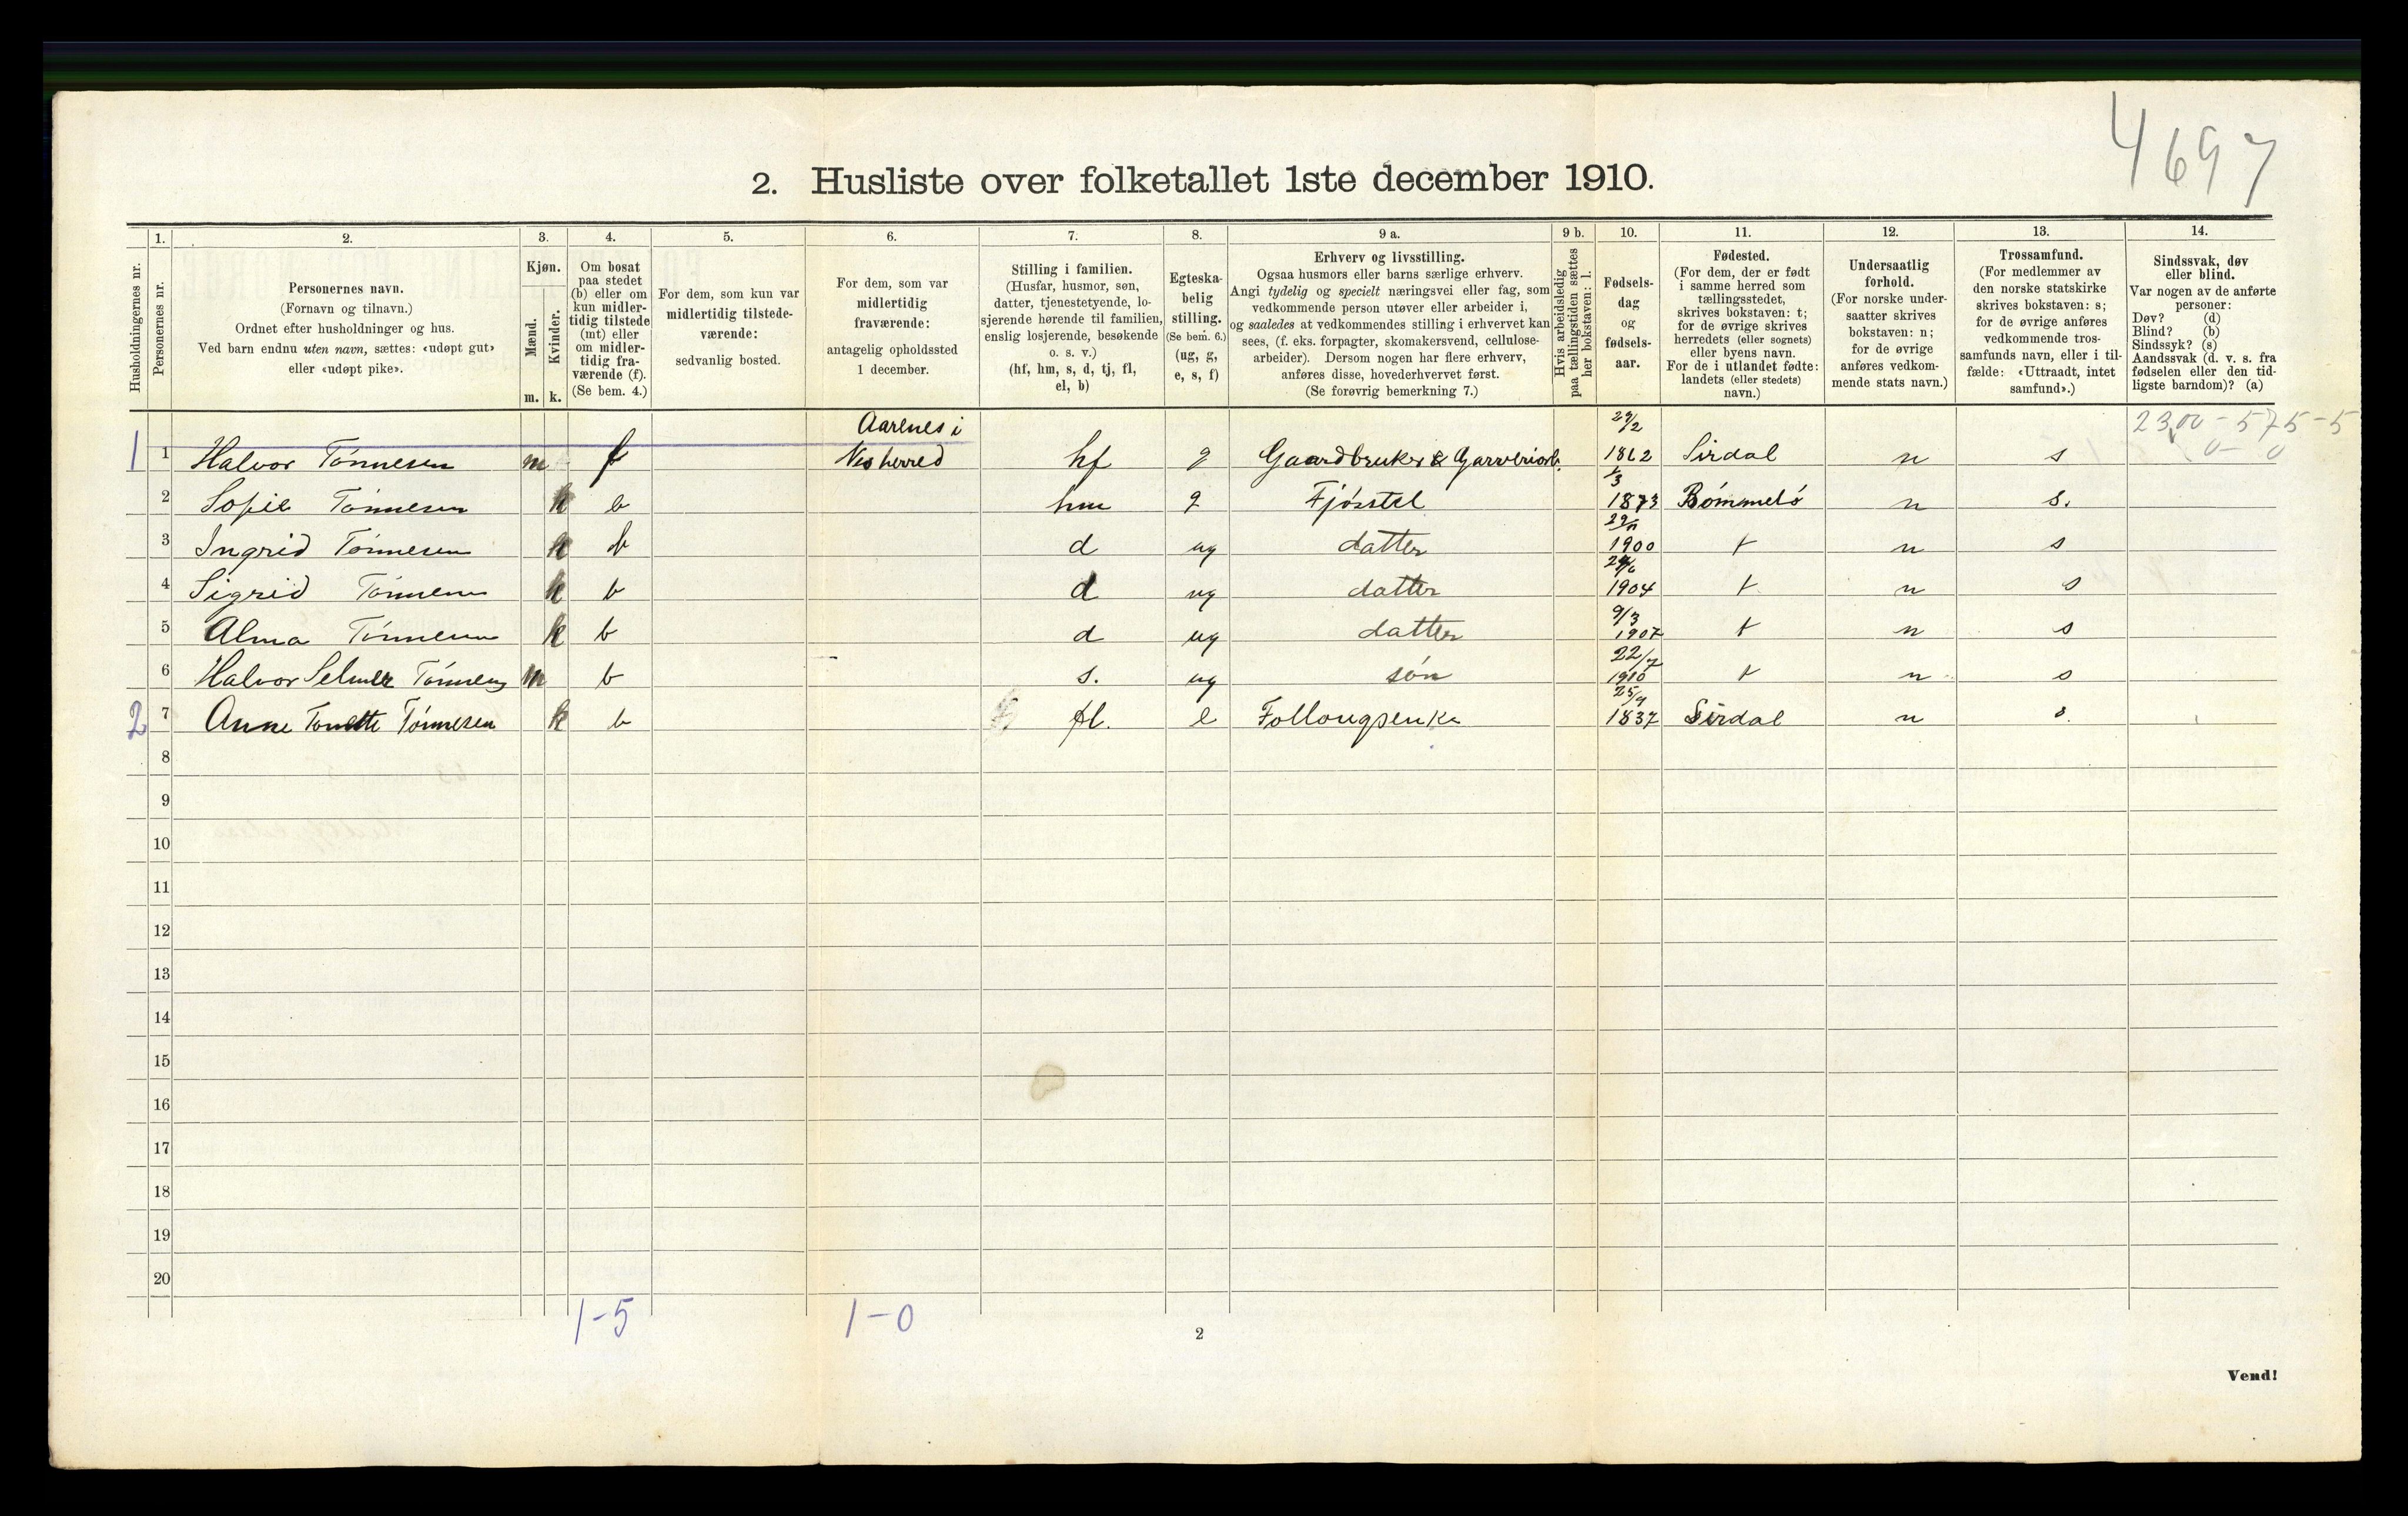 4697
2. Husliste over folketallet 1ste december 1910.
Husholdningernes nr.
1.
Personernes nr.
2.
Personernes navn.
(Fornavn og tilnavn.)
Ordnet efter husholdninger og hus.
Ved barn endnu uten navn, sættes: «udøpt gut»
eller «udøpt pike».
3.
Kjøn.
Mænd.
Kvinder.
m. k.
4.
Om bosat
paa stedet
(b) eller om
kun midler-
tidig tilstede
(mt) eller
om midler-
tidig fra-
værende (f).
(Se bem. 4.)
5.
For dem, som kun var
midlertidig tilstede-
værende:
sedvanlig bosted.
6.
For dem, som var
midlertidig
fraværende:
antagelig opholdssted
1 december.
7.
Stilling i familien.
(Husfar, husmor, søn,
datter, tjenestetyende, lo-
sjerende hørende til familien,
enslig losjerende, besøkende
o. s. v.)
(hf, hm, s, d, tj, fl,
el, b)
8.
Egteska-
belig
stilling.
(Se bem. 6.)
(ug, g,
e, s, f)
9 a.
Erhverv og livsstilling.
Ogsaa husmors eller barns særlige erhverv.
Angi tydelig og specielt næringsvei eller fag, som
vedkommende person utøver eller arbeider i,
og saaledes at vedkommendes stilling i erhvervet kan
sees, (f. eks. forpagter, skomakersvend, cellulose-
arbeider). Dersom nogen har flere erhverv,
anføres disse, hovederhvervet først.
(Se forøvrig bemerkning 7.)
9 b.
Hvis arbeidsledig
paa tællingstiden sættes
her bokstaven: l.
10.
Fødsels-
dag
og
fødsels-
aar.
11.
Fødested.
(For dem, der er født
i samme herred som
tællingsstedet,
skrives bokstaven: t;
for de øvrige skrives
herredets (eller sognets)
eller byens navn.
For de i utlandet fødte:
landets (eller stedets)
navn.)
12.
Undersaatlig
forhold.
(For norske under-
saatter skrives
bokstaven: n;
for de øvrige
anføres vedkom-
mende stats navn.)
13.
Trossamfund.
(For medlemmer av
den norske statskirke
skrives bokstaven: s;
for de øvrige anføres
vedkommende tros-
samfunds navn, eller i til-
fælde: «Uttraadt, intet
samfund».)
14.
Sindssvak, døv
eller blind.
Var nogen av de anførte
personer:
Døv? (d)
Blind? (b)
Sindssyk? (s)
Aandssvak (d. v. s. fra
fødselen eller den tid-
ligste barndom)? (a)
2300 - 575 - 5
0 - 0
1 1 Halvor Tønnesen m f Aarenes i Nes herred hf g Gaardbruker & Garveriarb. 29/2 1862 Sirdal n s
2 Sofie Tønnesen k b hm g Fjøsstel 1/3 1873 Bømmelø n s.
3 Ingrid Tønnesen k b d ug datter 29/11 1900 t n s
4 Sigrid Tønnesen k b d ug datter 1904 t n s
5 Alma Tønnesen k b d ug datter 9/3 1907 t n s
6 Halvor Selmer Tønnesen m b s. ug søn 22/7 1910 t n s
2 7 Anne Tonette Tønnesen k b fl. e Follougsenke 25/9 1837 Sirdal n s.
8
9
10
11
12
13
14
15
16
17
18
19
20
1-5 1-0
2
Vend!